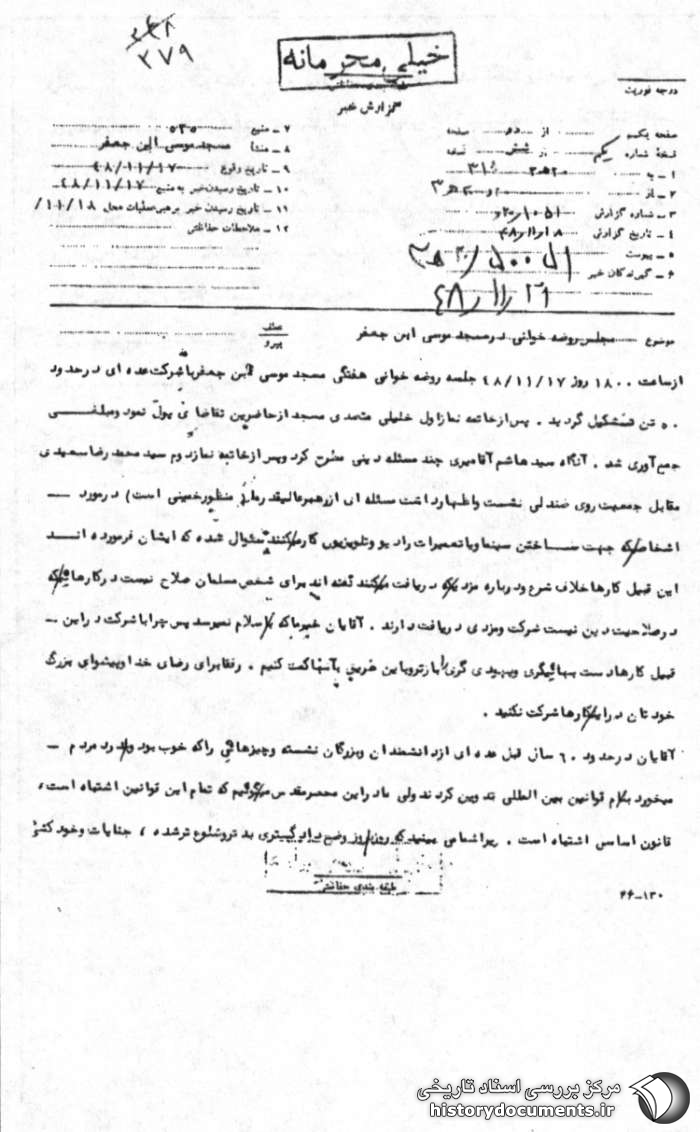 ۳۷۹
خیلی محرمانه
طبقه بندی حفاظتی
گزارش خبر
درجه فوریت
صفحه یکم از دو صفحه
نسخه شماره یکم از شش نسخه
۱ - به ۳۱۵
۲ - از ۲۰ ه ۳
۳ - شماره گزارش
۴ - تاریخ گزارش ۴۸/۱۱/۱۸
۵ - پیوست
۶ - گیرندگان خبر
۴۸/۱۱/۲۱
۷ - منبع ۵۳۵
۸ - منشأ مسجد موسی ابن جعفر
۹ - تاریخ وقوع ۴۸/۱۱/۱۷
۱۰ - تاریخ رسیدن خبر به منبع ۴۸/۱۱/۱۷
۱۱ - تاریخ رسیدن خبر برهبر عملیات محل ۱۱/۱۸/
۱۲ - ملاحظات حفاظتی
موضوع مجلس روضه خوانی در مسجد موسی ابن جعفر
عطف
پیرو
از ساعت ۱۸۰۰ روز ۴۸/۱۱/۱۷ جلسه روضه خوانی هفتگی مسجد موسی ابن جعفر با شرکت عده ای در حدود
۵۰ تن تشکیل گردید . پس از خاتمه نماز اول خلیلی متصدی مسجد از حاضرین تقاضای پول نمود و مبلغی
جمع آوری شد . آنگاه سید هاشم آقامیری چند مسئله دینی مطرح کرد و پس از خاتمه نماز دوم سید محمد رضا سعیدی
مقابل جمعیت روی صندلی نشست و اظهار داشت مسئله ای از رهبر عالیقدر ما ( منظور خمینی است ) در مورد
اشخاصیکه جهت ساختن سینما و یا تعمیرات رادیو و تلویزیون کار میکنند سئوال شده که ایشان فرموده اند
این قبیل کارها خلاف شرع و درباره مزدیکه دریافت میکنند گفته اند برای شخص مسلمان صلاح نیست در کارهائیکه
در صلاحیت دین نیست شرکت و مزدی دریافت دارند . آقایان خیر ما که باسلام نمیرسد پس چرا با شرکت در این
قبیل کارها دست بهائیگری و یهودی گری را بازتر و باین طریق بآنها کمک کنیم . رفقا برای رضای خدا و پیشوای بزرگ
خودتان در این کارها شرکت نکنید .
آقایان در حدود ۶۰ سال قبل عده ای از دانشمندان و بزرگان نشسته و چیزهائی را که خوب بود و بدرد مردم
میخورد بنام قوانین بین المللی تدوین کردند ولی ما در این عصر مقدس میگوئیم که تمام این قوانین اشتباه است ،
قانون اساسی اشتباه است . زیرا شما می بینید که روز بروز وضع دادگستری بدتر و شلوغ تر شده ، جنایات و خودکشی
طبقه بندی حفاظتی
۶۶-۱۳۰
مرکز بررسی اسناد تاریخی
historydocuments.ir